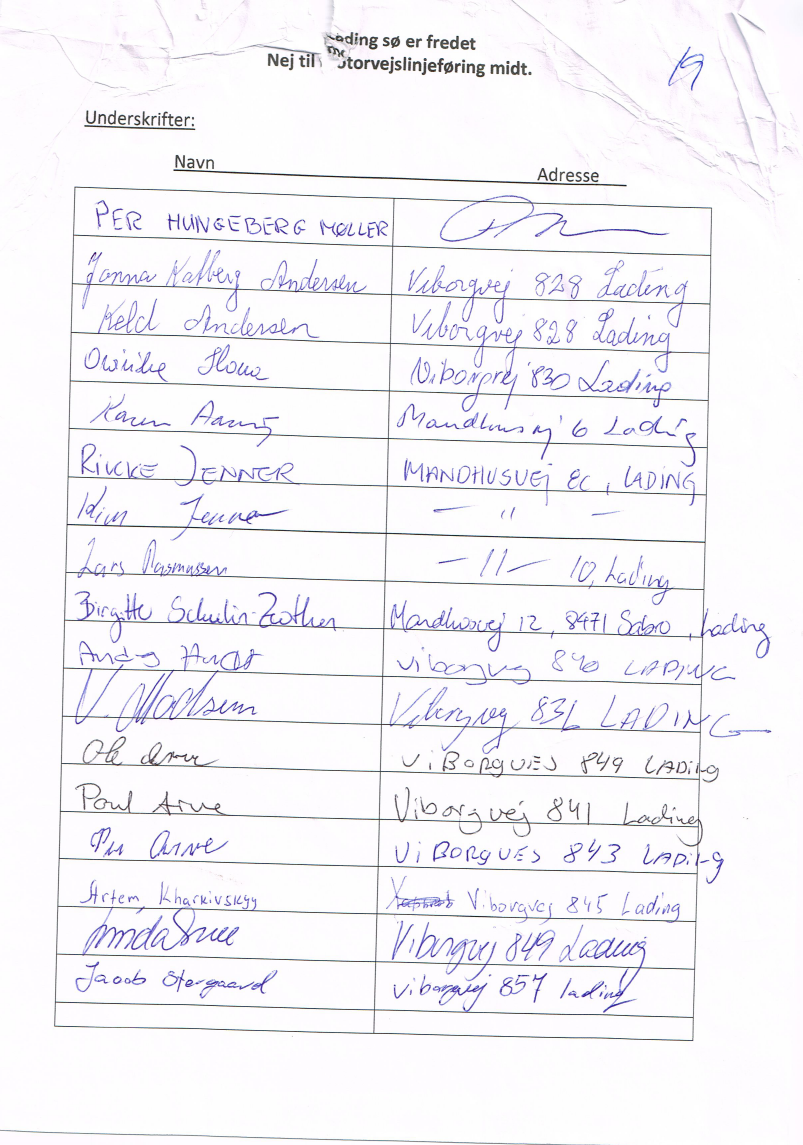 ading sø er fredet
Nej til torvejslinjeføring midt.
19
Underskrifter:
Navn Adresse
PER HUNGEBERG MØLLER
Janna Kalberg Andersen Viborgvej 828 Lading
Keld Andersen Viborgvej 828 Lading
Viborgvej 830 Lading
Karen Mandhusvej 6 Lading
RIKKE JENNER MANDHUSVEJ 8C, LADING
Kim Jenner — " —
Lars Rasmussen — 11 — 10, Lading
Birgitte Mandhusvej 12, 8471 Sabro, Lading
Viborgvej 840 LADING
V. Madsen Viborgvej LADING
Ole ViBORGVEJ 849 LADING
Poul Arve Viborgvej 841 Lading
ViBORGVEJ 843 LADING
Artem, Kharkivskyy Viborgvej 845 Lading
Viborgvej 849 Lading
Jacob Stergaard viborgvej 857 lading